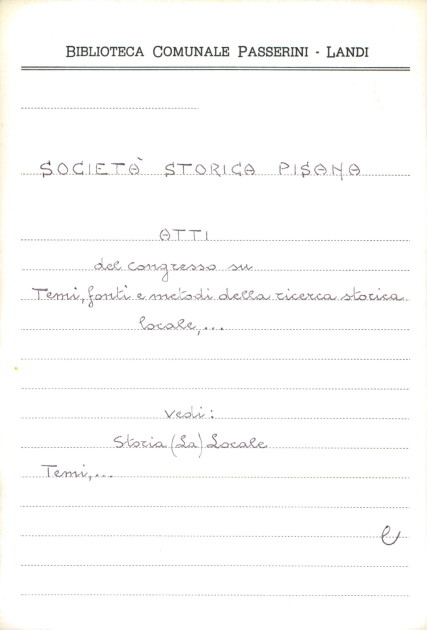 BIBLIOTECA COMUNALE PASSERINI - LANDI
SOCIETÀ STORICA PISANA
ATTI
del congresso su
Temi, fonti e metodi della ricerca storica
locale,...
vedi:
Storia (La) Locale
Temi,...
e